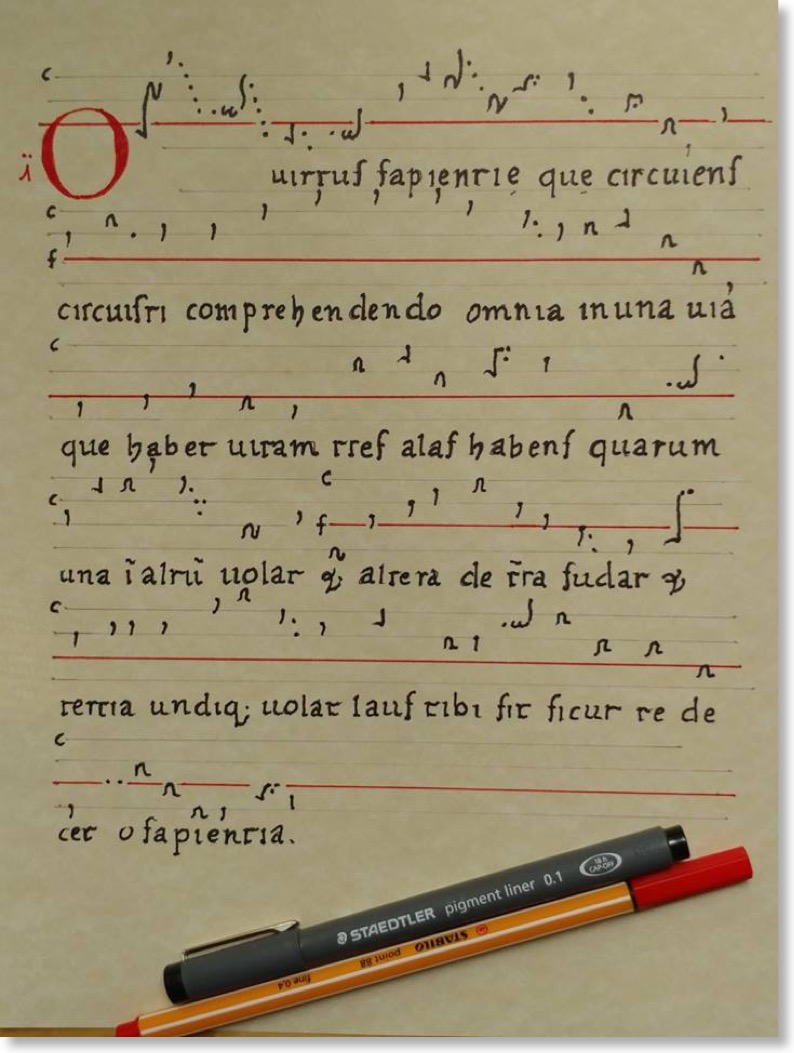 O uirtuſ ſapientie que circuienſ
circuiſti comprehendendo omnia in una uia
que habet uitam treſ alaſ habenſ quarum
una ĩ altũ uolat & altera de t̃ra ſudat &
tertia undiq; uolat lauſ tibi ſit ſicut te de
cet o ſapientia.
STAEDTLER pigment liner 0.1
18 h CAP-OFF
STABILO point 88 fine 0,4